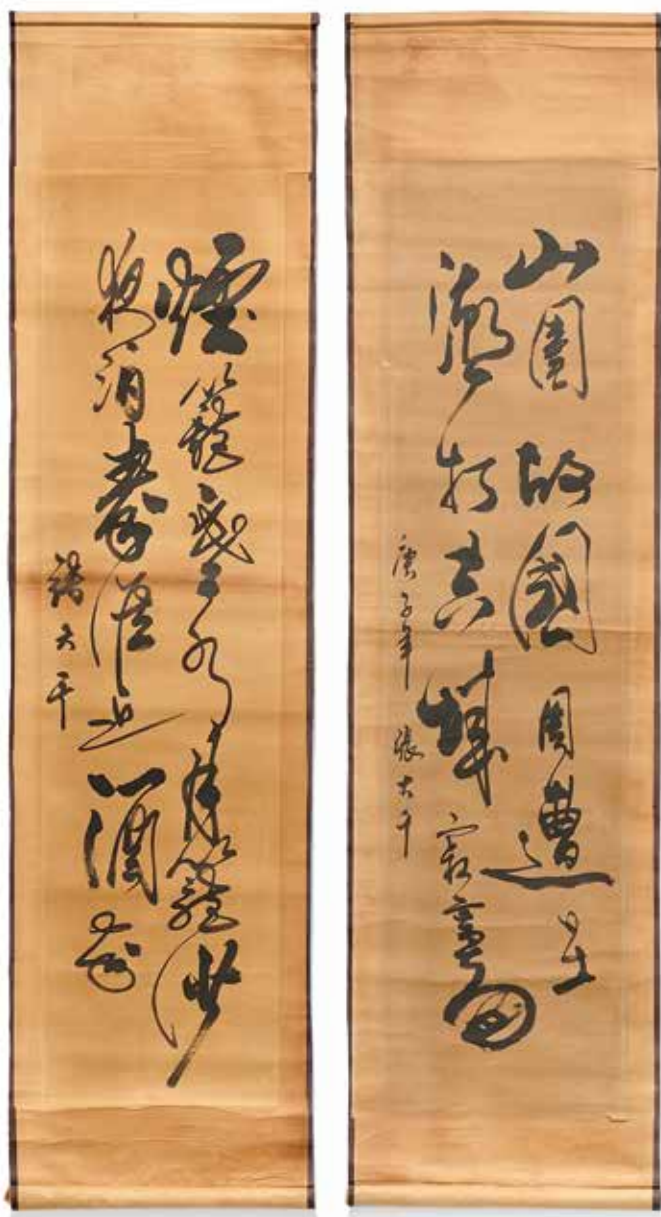 山圍故國周遭在
潮打空城寂寞回
庚子年 張大千
煙籠寒水月籠沙
夜泊秦淮近酒家
張大千